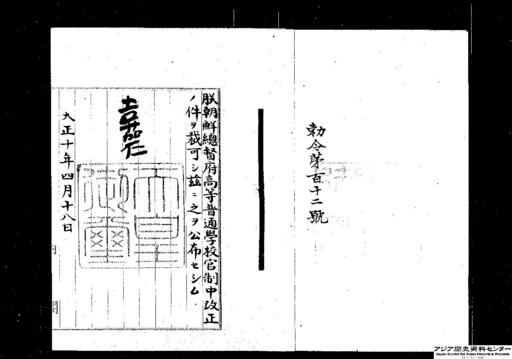 勅令第百十二號
朕朝鮮總督府高等普通學校官制中改正
ノ件ヲ裁可シ茲ニ之ヲ公布セシム
嘉仁
天皇
御璽
大正十年四月十八日
アジア歴史資料センター
Japan Center for Asian Historical Records